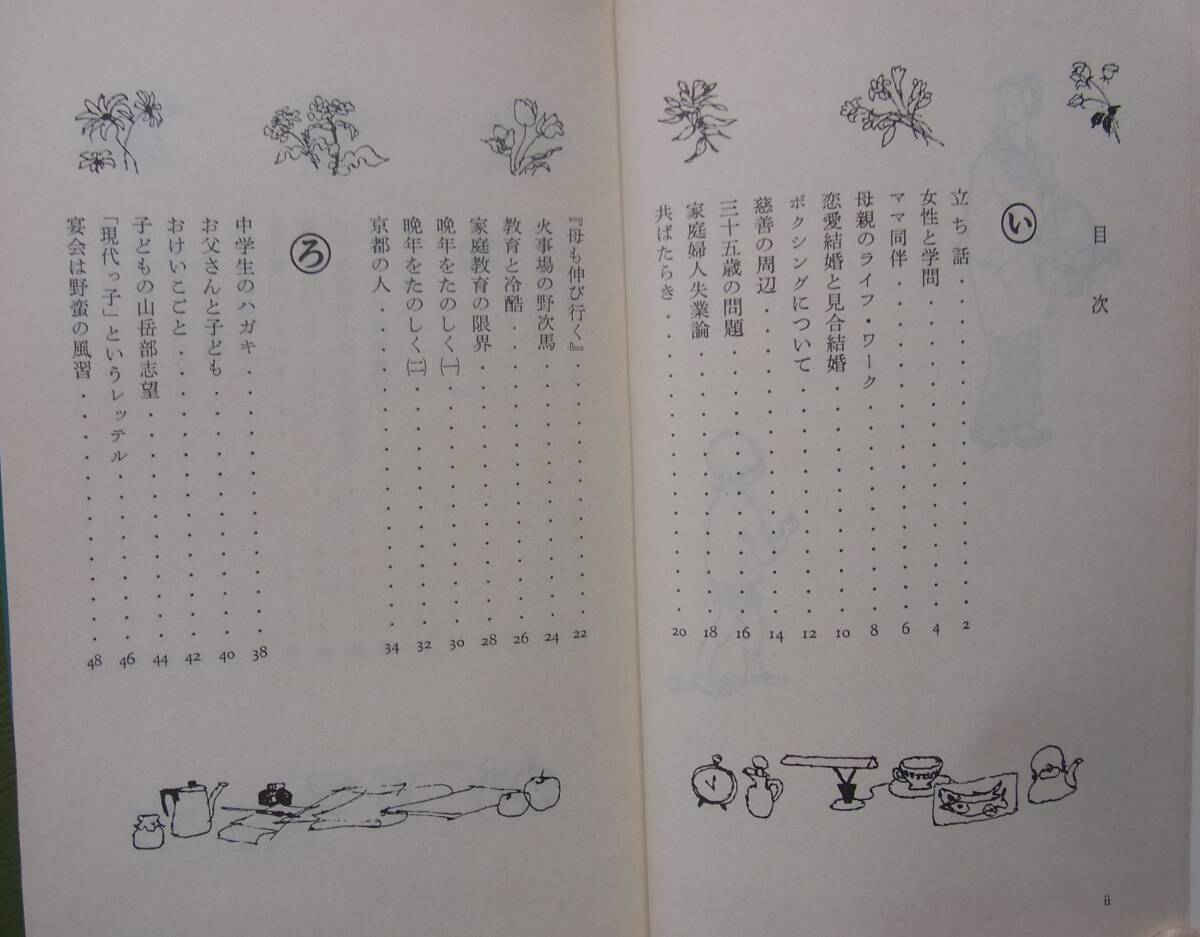 目次
い
立ち話 2
女性と学問 4
ママ同伴 6
母親のライフ・ワーク 8
恋愛結婚と見合結婚 10
ボクシングについて 12
慈善の周辺 14
三十五歳の問題 16
家庭婦人失業論 18
共ばたらき 20
ii
『母も伸び行く』 22
火事場の野次馬 24
教育と冷酷 26
家庭教育の限界 28
晩年をたのしく㈠ 30
晩年をたのしく㈡ 32
京都の人 34
ろ
中学生のハガキ 38
お父さんと子ども 40
おけいこごと 42
子どもの山岳部志望 44
「現代っ子」というレッテル 46
宴会は野蛮の風習 48